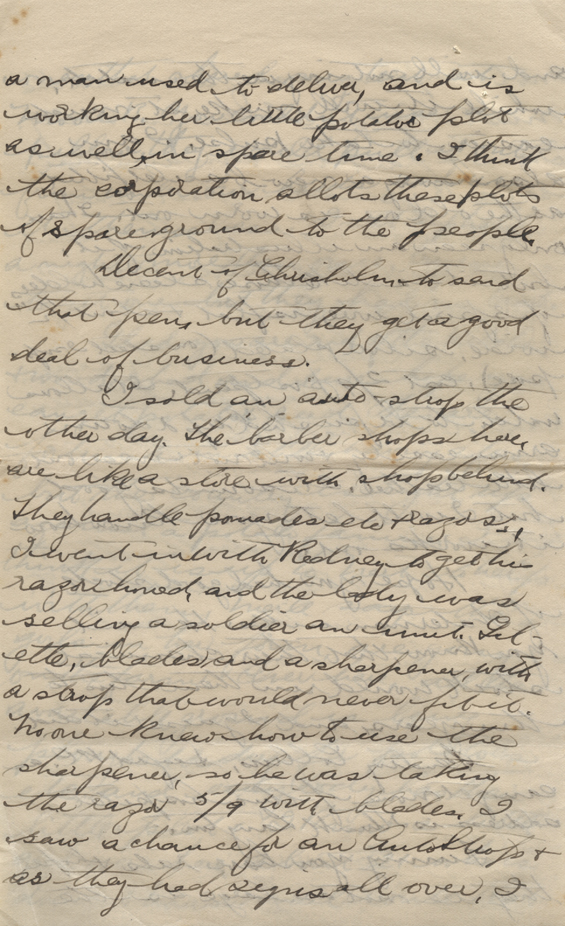 a man used to deliver, and is
working her little potatoe plot
as well, in spare time. I think
the corporation allots these plots
of spare ground to the people.
Decent of Chrisholm to send
that pen, but they get a good
deal of business.
I sold an auto-strop the
other day. The barber shops here,
are like a store with, shop behind.
They handle pomades etc + razors,
I went in with Rodney to get his
razor honed, and the lady was
selling a soldier an imit. Gil-
ette, blades and a sharpener, with
a strop that would never fit it.
No one knew how to use the
sharpener, so he was taking
the razor 5/9 with blades. I
saw a chance for an AutoStrop +
as they had signs all over, I